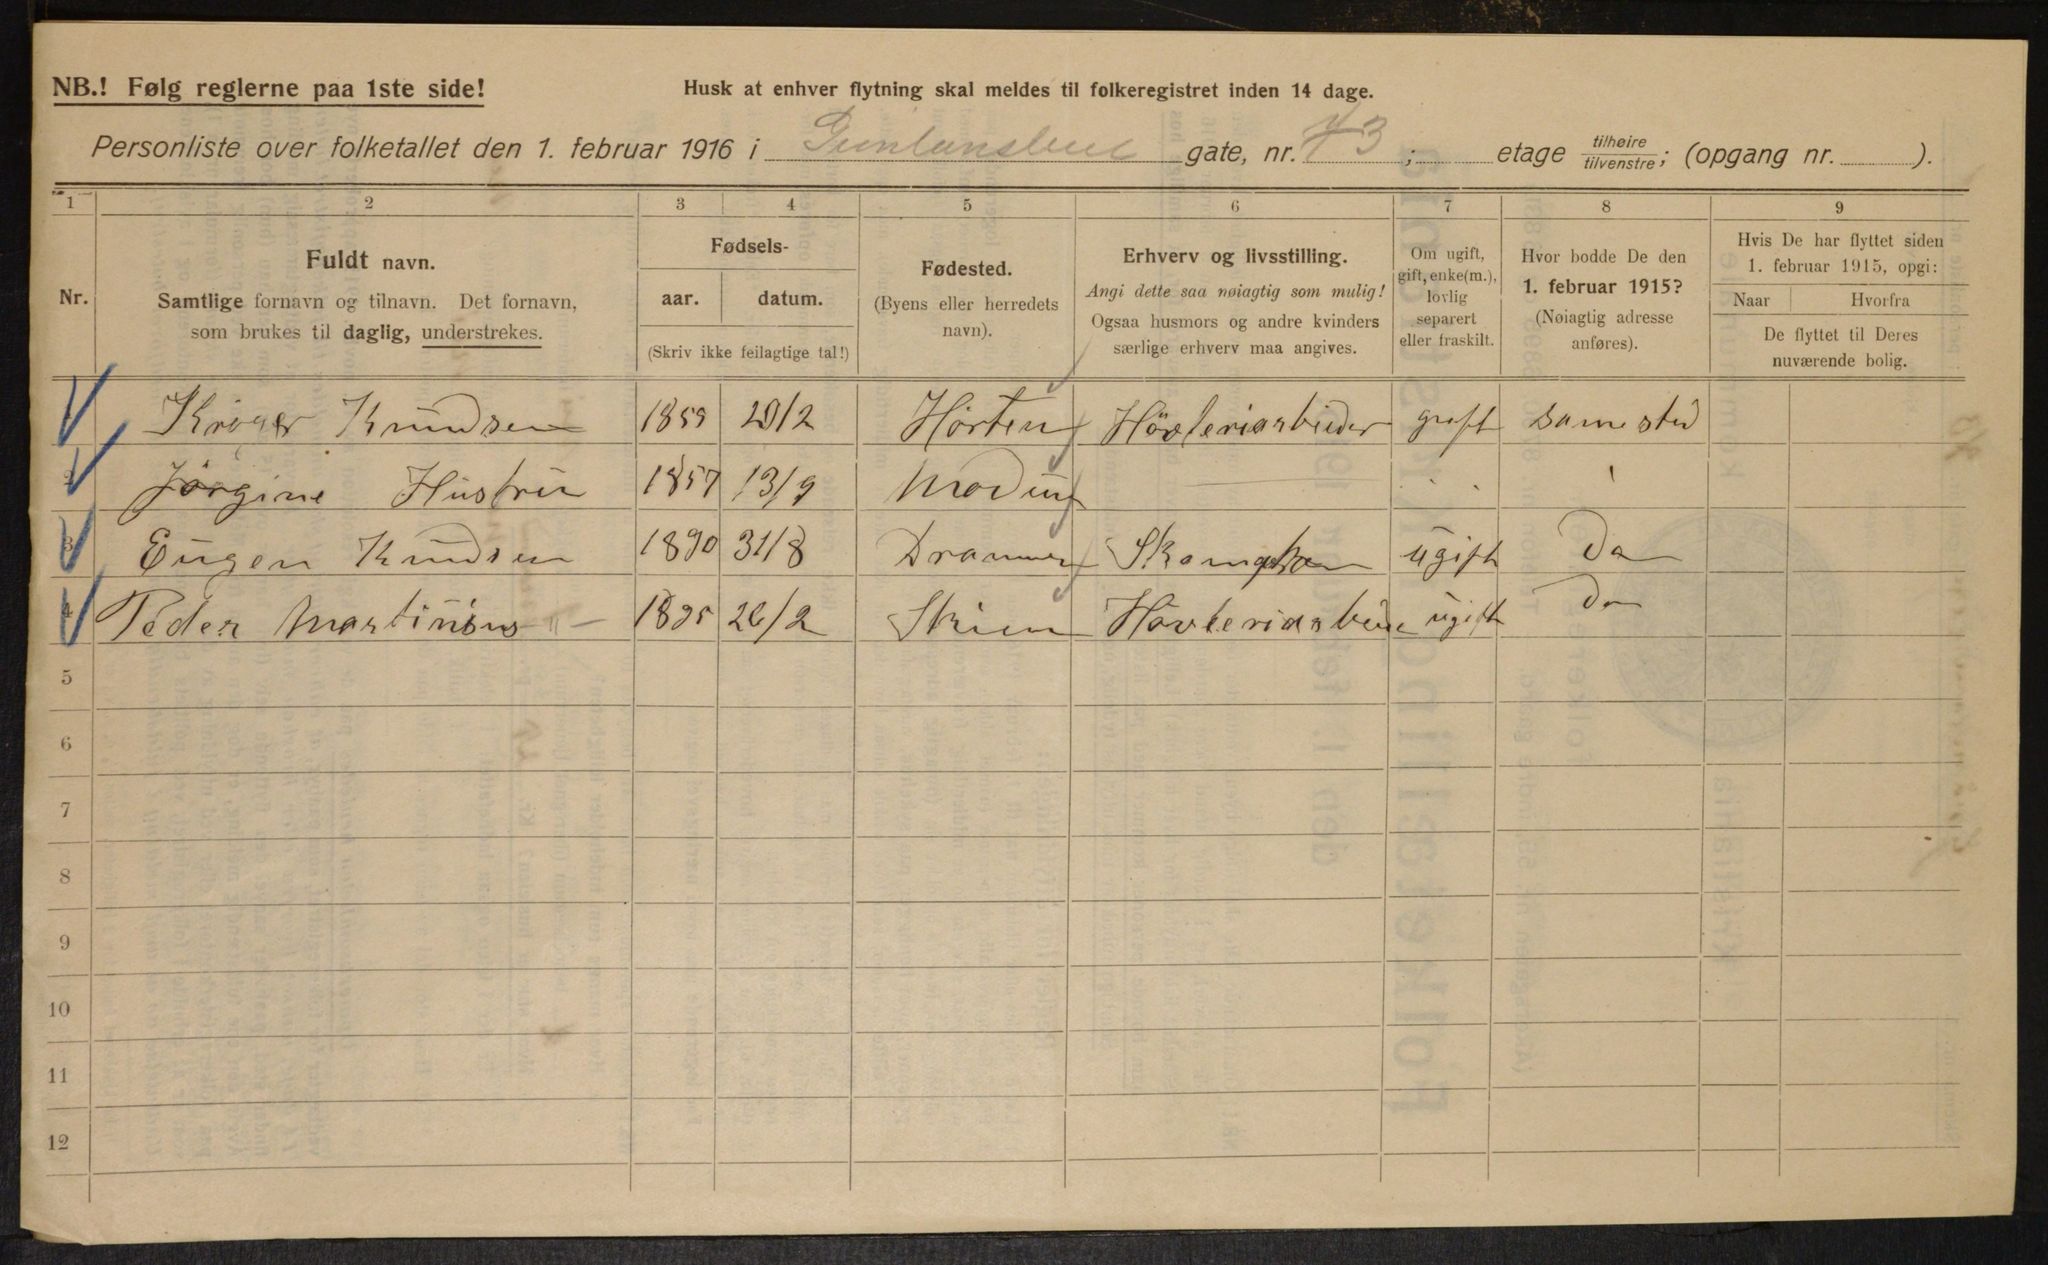 NB.! Følg reglerne paa 1ste side!
Husk at enhver flytning skal meldes til folkeregistret inden 14 dage.
Personliste over folketallet den 1. februar 1916 i gate, nr. 3; etage tilhøire tilvenstre; (opgang nr. ).
1 2 3 4 5 6 7 8 9
Nr.
Fuldt navn.
Samtlige fornavn og tilnavn. Det fornavn,
som brukes til daglig, understrekes.
Fødsels-
aar. datum.
(Skriv ikke feilagtige tal!)
Fødested.
(Byens eller herredets
navn).
Erhverv og livsstilling.
Angi dette saa nøiagtig som mulig!
Ogsaa husmors og andre kvinders
særlige erhverv maa angives.
Om ugift,
gift, enke(m.),
lovlig
separert
eller fraskilt.
Hvor bodde De den
1. februar 1915?
(Nøiagtig adresse
anføres).
Hvis De har flyttet siden
1. februar 1915, opgi:
Naar Hvorfra
De flyttet til Deres
nuværende bolig.
1 Knudsen 1859 29/2 Horten Hövleriarbeider gift samested
2 Jörgine Hustru 1857 13/9 Modum
3 Eugen Knudsen 1890 31/8 Drammen ugift Do
4 Peder Martinsen 1895 26/2 Skien Hövleriarbeider ugift Do
5
6
7
8
9
10
11
12